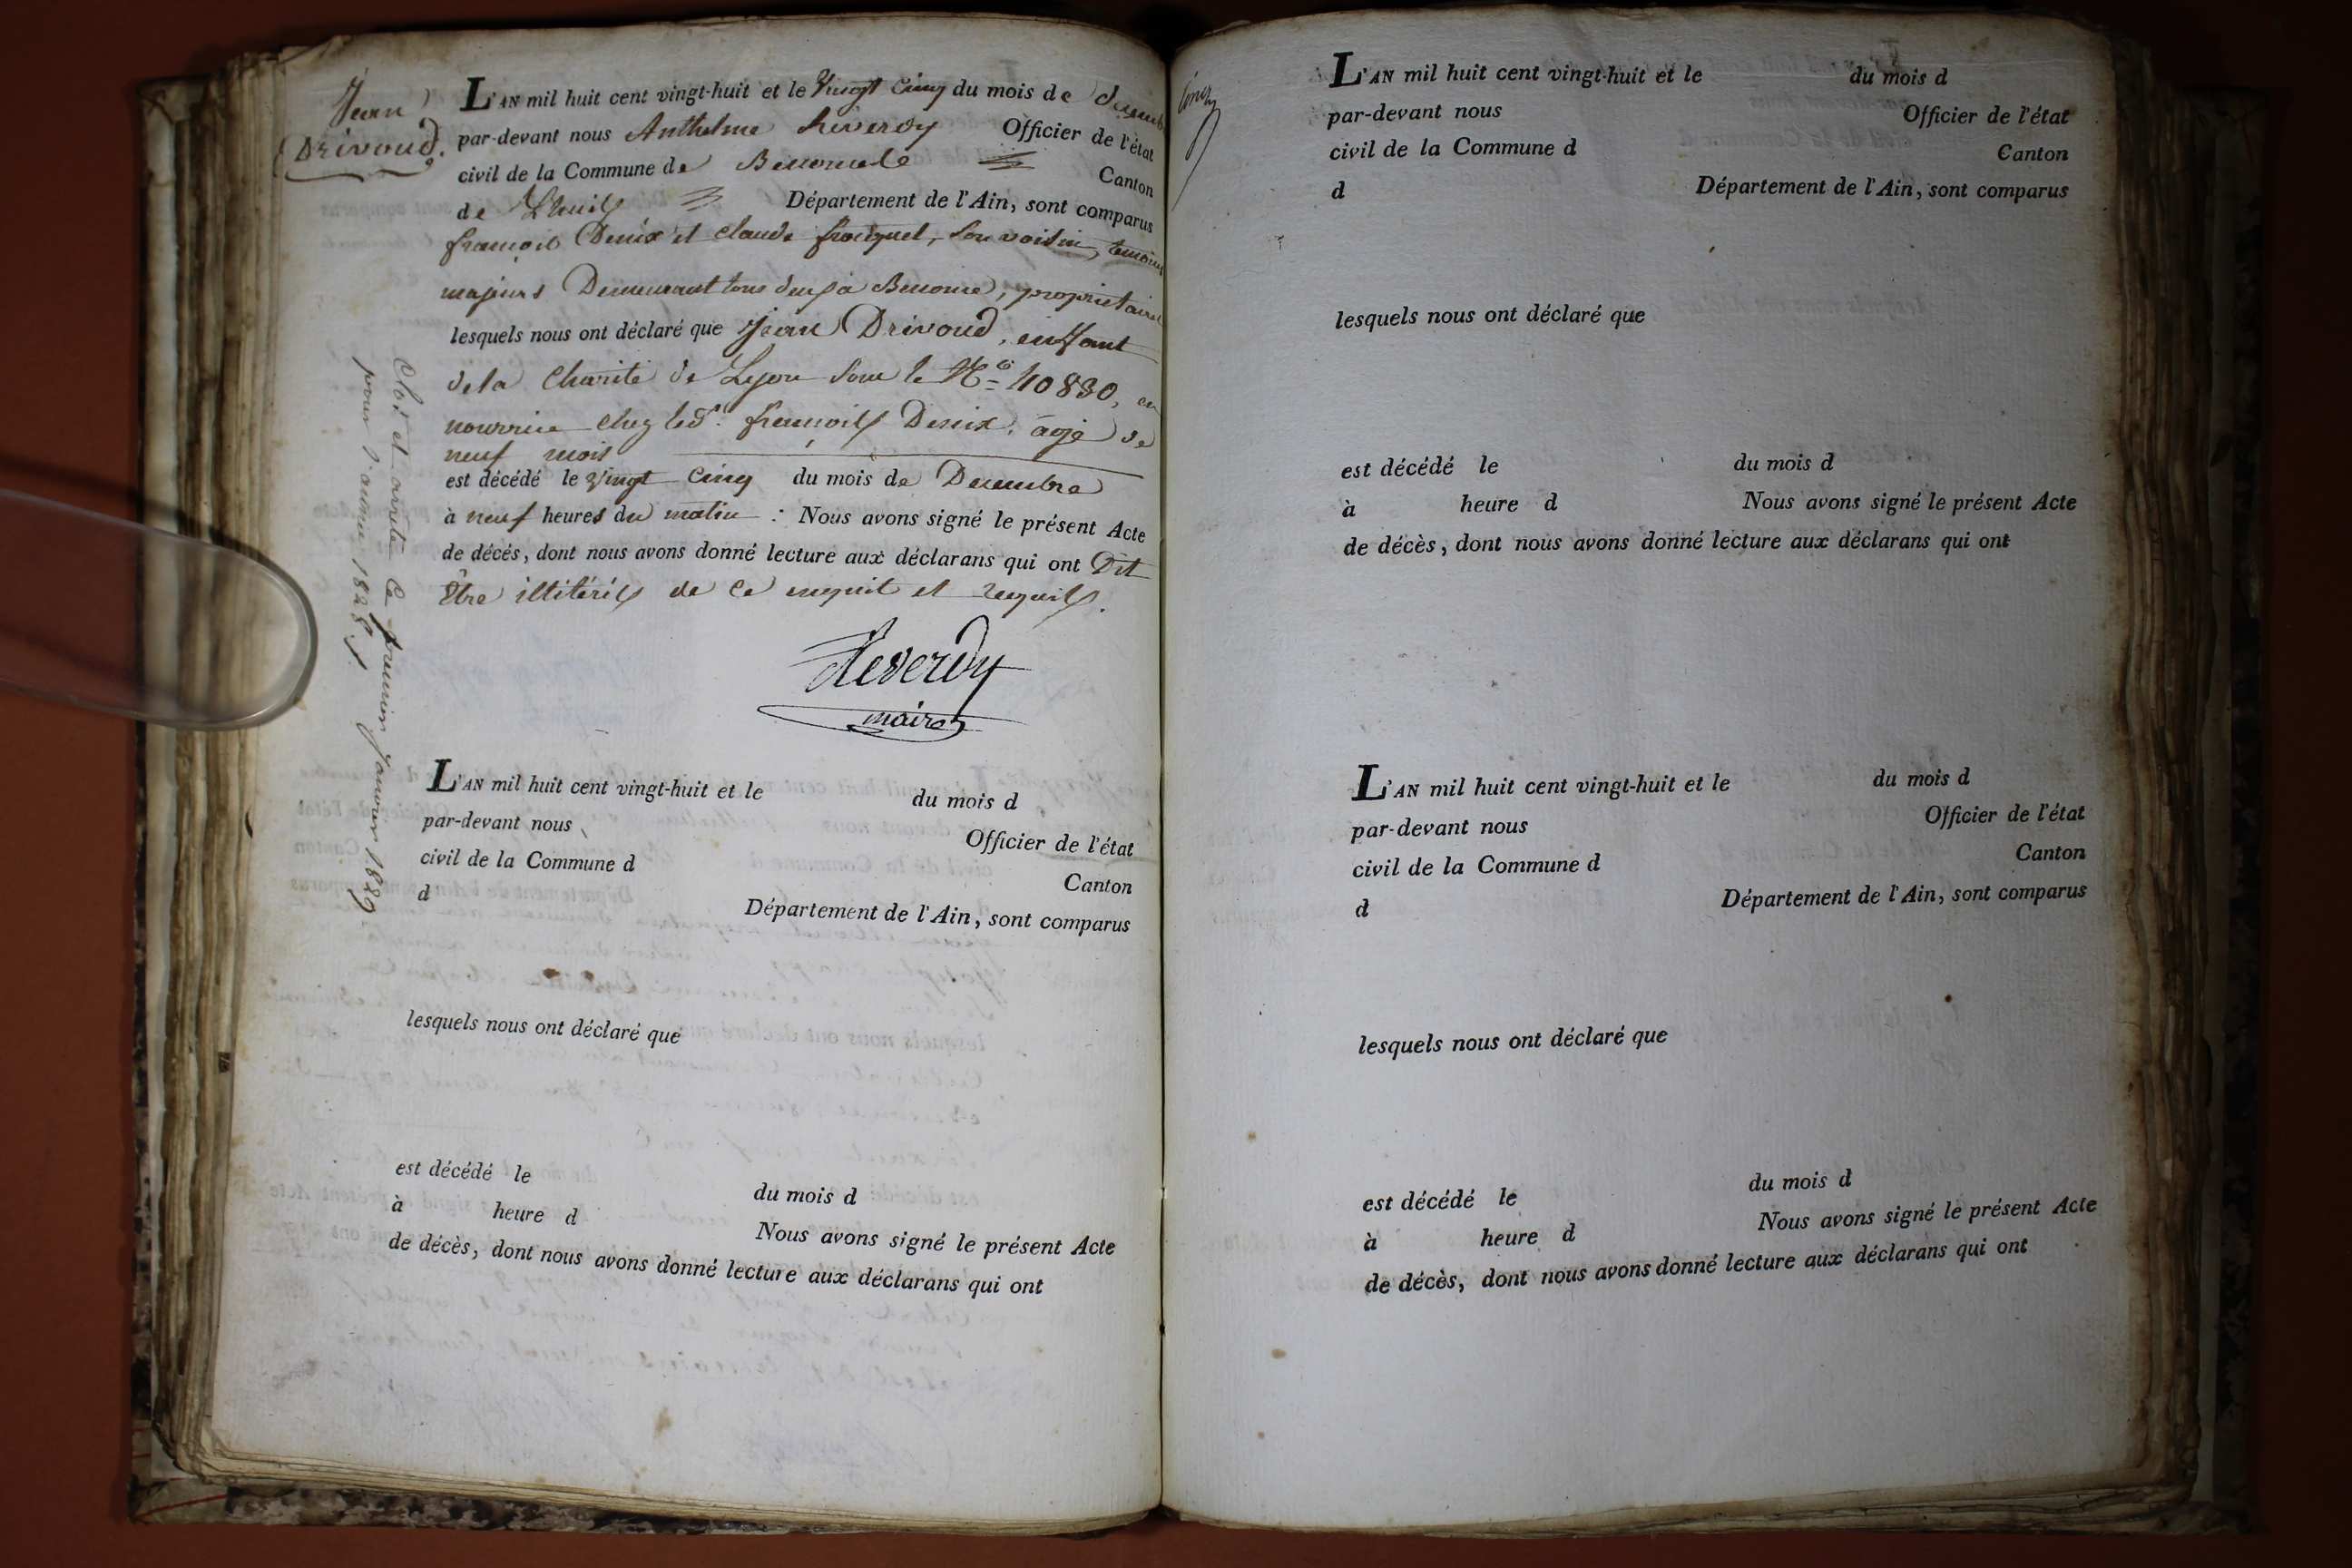 Jean
Drivoud.
L'AN mil huit cent vingt-huit et le vingt cinq du mois de decemb
par-devant nous Anthelme Reverdy Officier de l'état
civil de la Commune de Canton
de Lhuis Département de l'Ain, sont comparus
francois Denix et claude son voisin, temoins
majeurs Demeurant tous deux a propriétaires
lesquels nous ont déclaré que Jean Drivoud, enffant
de la Charité de Lyon sous le N.o 40830, en
nourrice chez led.t francois Denix, âgé de
neuf mois
est décédé le vingt cinq du mois de Decembre
à neuf heures du matin : Nous avons signé le présent Acte
de décés, dont nous avons donné lecture aux déclarans qui ont Dit
être de ce enquit et requis.
Reverdy
maire
Clos et arrêté le premier Janvier 1829
pour l'année 1828.
L'AN mil huit cent vingt-huit et le du mois d
par-devant nous Officier de l'état
civil de la Commune d Canton
d Département de l'Ain, sont comparus
lesquels nous ont déclaré que
est décédé le du mois d
à heure d Nous avons signé le présent Acte
de décès, dont nous avons donné lecture aux déclarans qui ont
L'AN mil huit cent vingt-huit et le du mois d
par-devant nous Officier de l'état
civil de la Commune d Canton
d Département de l'Ain, sont comparus
lesquels nous ont déclaré que
est décédé le du mois d
à heure d Nous avons signé le présent Acte
de décès, dont nous avons donné lecture aux déclarans qui ont
L'AN mil huit cent vingt-huit et le du mois d
par-devant nous Officier de l'état
civil de la Commune d Canton
d Département de l'Ain, sont comparus
lesquels nous ont déclaré que
est décédé le du mois d
à heure d Nous avons signé le présent Acte
de décès, dont nous avons donné lecture aux déclarans qui ont